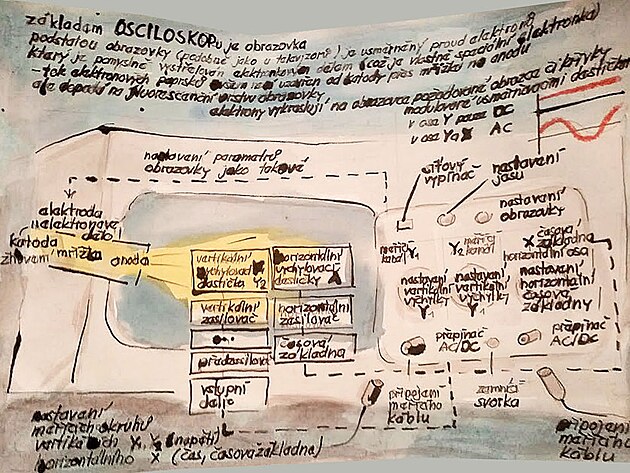 základam OSCILOSKOPu je obrazovka
podstatou obrazovky (podobně jako u televizorů) je usměrněný proud elektronů
který je pomyslně vystřelován elektronkovým dělem (což je vlastně speciální elektronka)
-tok elektronových paprsků ovšem není uzavřen od katody přes mřížku na anodu
ale dopadá na fluorescenční vrstvu obrazovky
elektrony vykreslují na obrazovce požadované obrazce či křivky
modulované usměrňovacími destičkami
v ose Y pouze DC
v ose Y a X AC
nastavení parametrů
obrazovky jako takové
síťový
vypínač
nastavení
jasu
nastavení
obrazovky
elektroda
elektronové
dělo
katoda
žhavení
mřížka
anoda
vertikální
vychylovací
destičky Y2
horizontální
vychylovací
destičky X
vertikální
zesilovač
horizontální
zesilovač
předzesilovač
časová
základna
vstupní
dělič
měřící
kabel Y1
Y2 měřící
kanál
X časová
základna
horizontální osa
nastavení
vertikální
výchylky
Y
nastavení
vertikální
výchylky
Y
nastavení
horizontální
časové
základny
X
přepínač
AC/DC
přepínač
AC/DC
připojení
měřícího
kablu
zemnící
svorka
připojení
měřícího
kablu
nastavení
měřících okruhů
vertikálních Y1 Y2 (napětí)
horizontálního X (čas, časová základna)